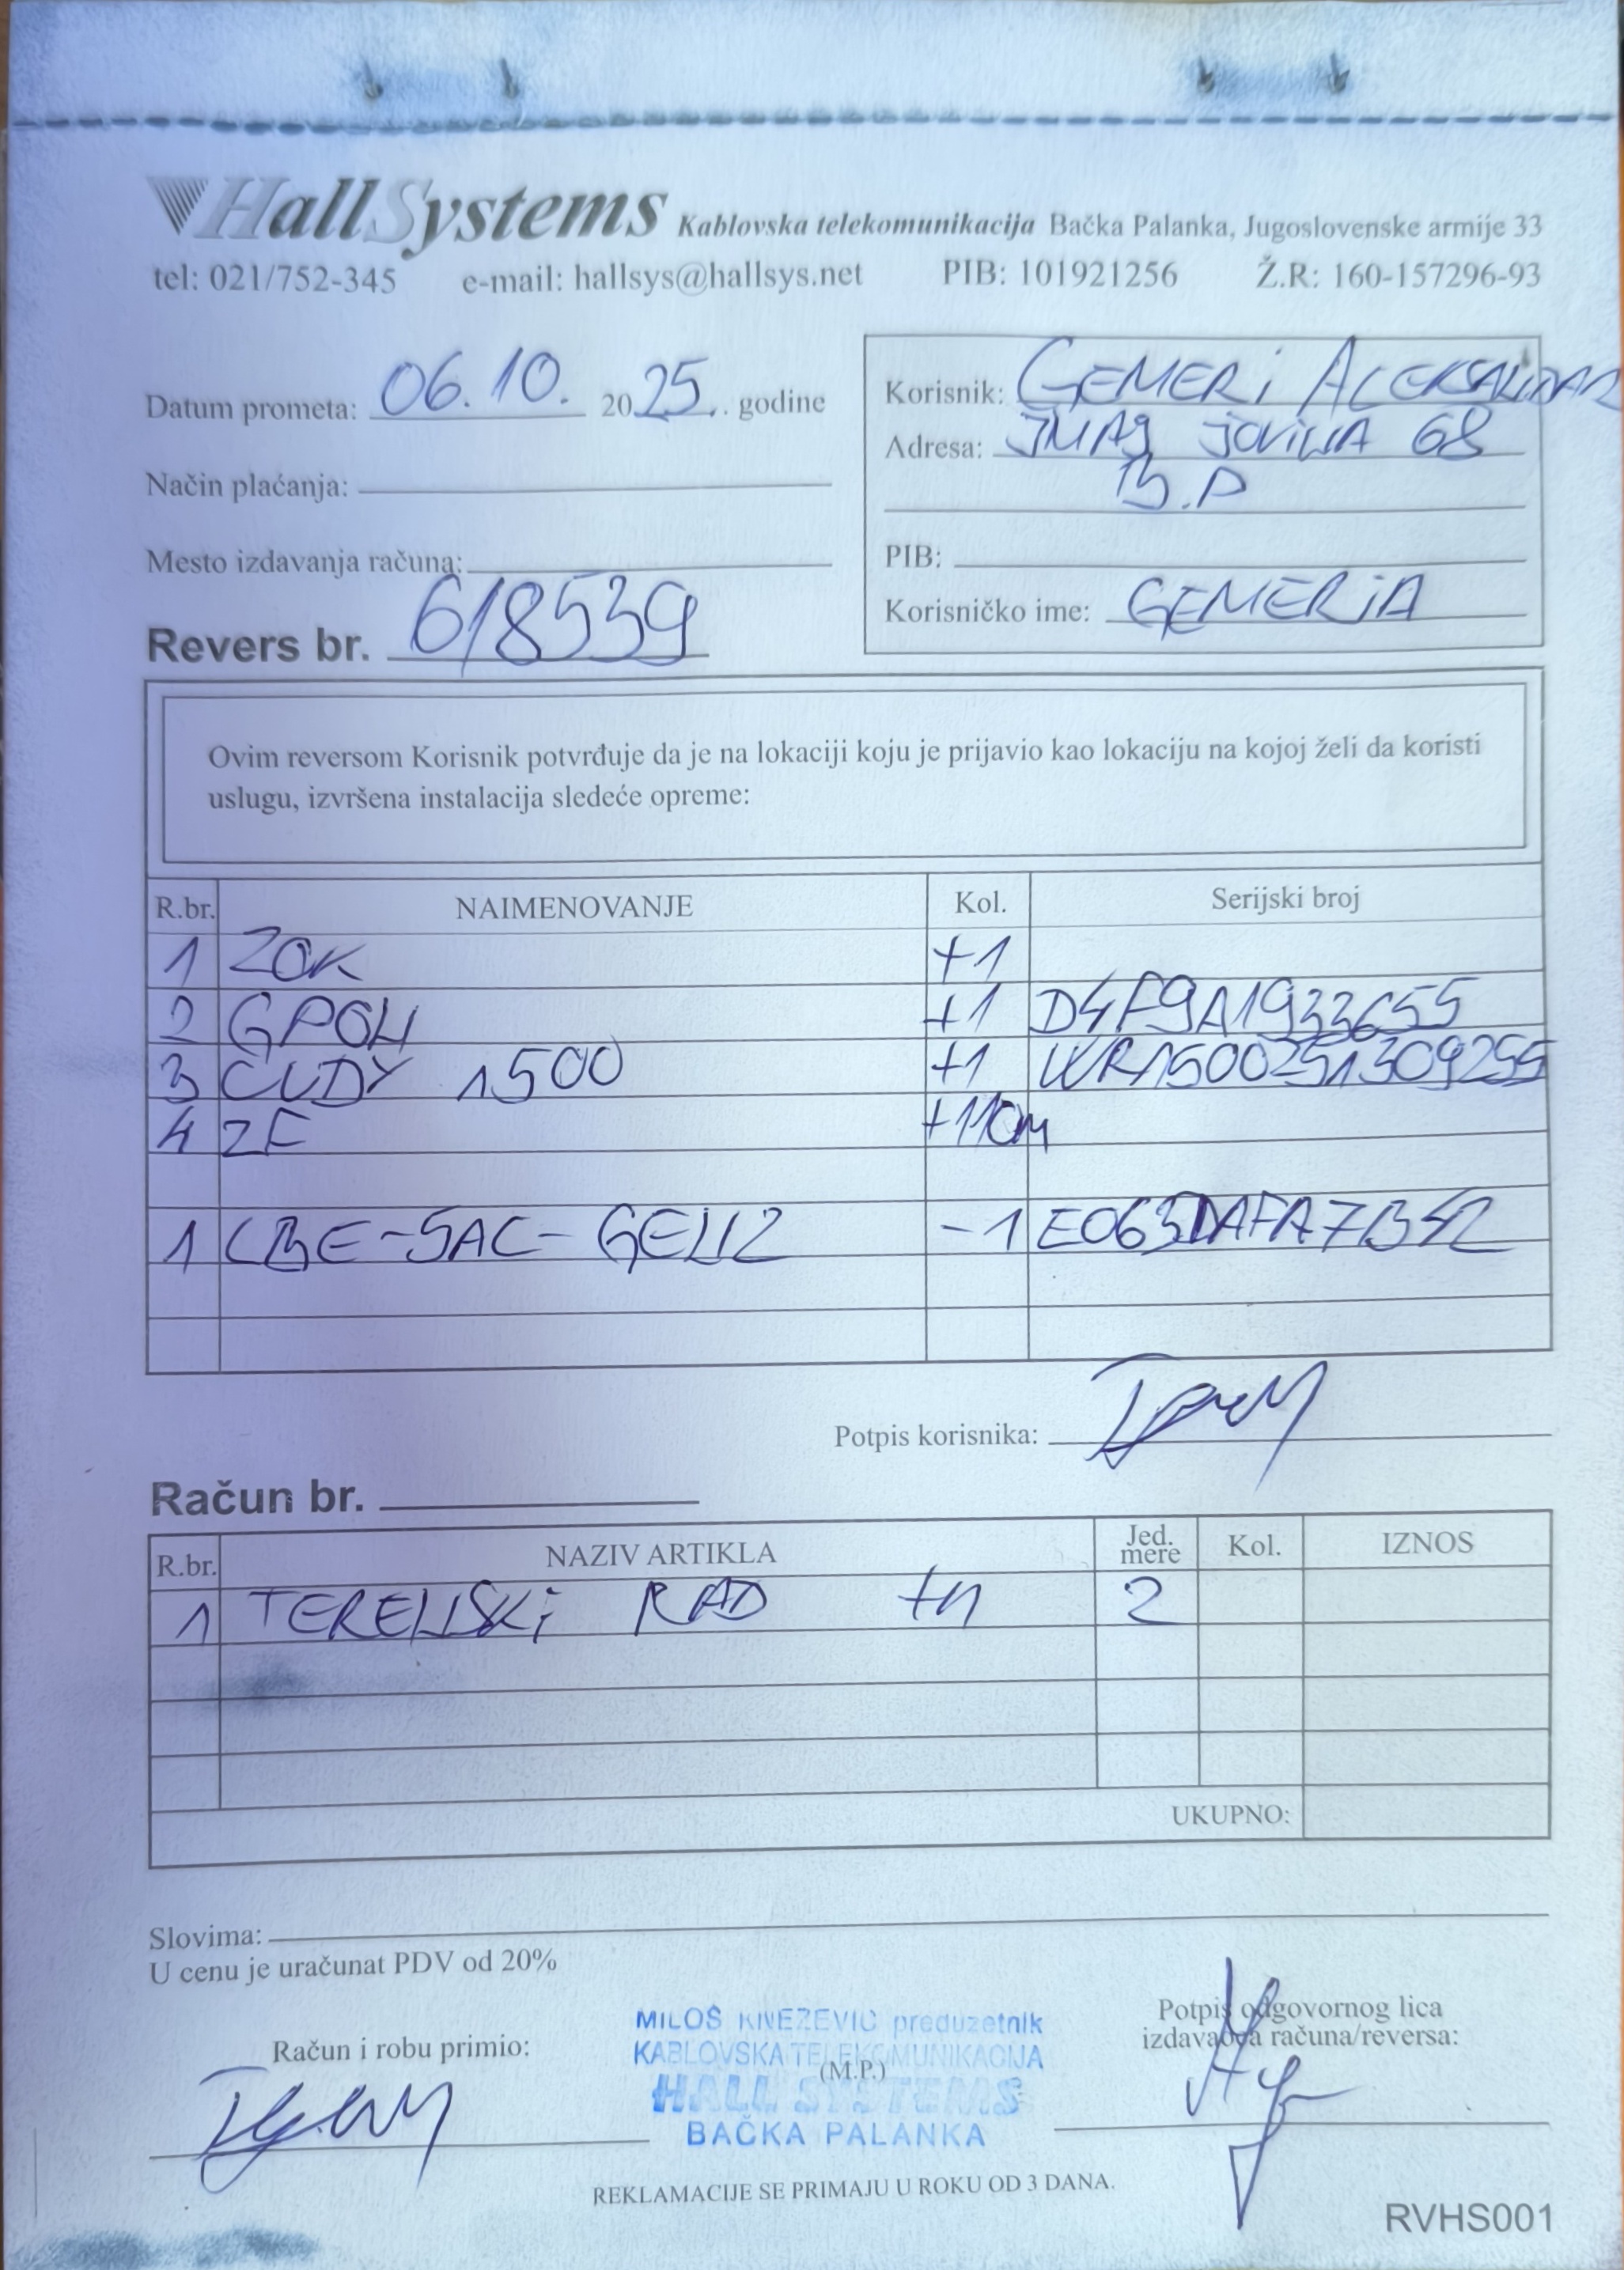 HallSystems Kablovska telekomunikacija Bačka Palanka, Jugoslovenske armije 33
tel: 021/752-345 e-mail: hallsys@hallsys.net PIB: 101921256 Ž.R: 160-157296-93
Datum prometa: 06.10. 2025. godine
Način plaćanja:
Mesto izdavanja računa:
Revers br. 618539
Korisnik: GEMERi ALEKSANDAR
Adresa: JOVINA 68
B.P
PIB:
Korisničko ime: GEMERiA
Ovim reversom Korisnik potvrđuje da je na lokaciji koju je prijavio kao lokaciju na kojoj želi da koristi
uslugu, izvršena instalacija sledeće opreme:
R.br. NAIMENOVANJE Kol. Serijski broj
1 ZOK +1
2 GPON +1 D4F9A1933655
3 CUDY 1500 +1 WR1500251309255
4 ZF +110m
1 LBE-5AC-GEN2 -1 E063DAFA7B42
Potpis korisnika:
Račun br.
R.br. NAZIV ARTIKLA Jed. mere Kol. IZNOS
1 TERENSKi RAD +1 2
UKUPNO:
Slovima:
U cenu je uračunat PDV od 20%
Račun i robu primio:
MILOŠ KNEŽEVIĆ preduzetnik
KABLOVSKA TELEKOMUNIKACIJA
(M.P.)
HALL SYSTEMS
BAČKA PALANKA
Potpis odgovornog lica
izdavaoca računa/reversa:
REKLAMACIJE SE PRIMAJU U ROKU OD 3 DANA.
RVHS001